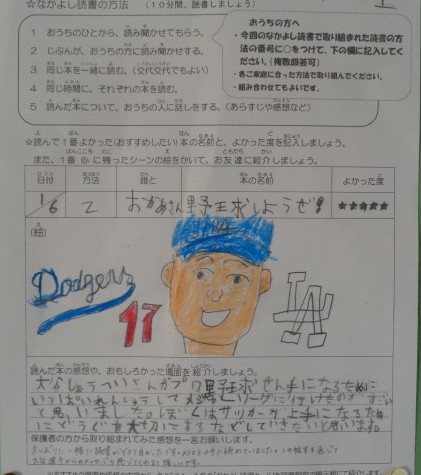 ☆なかよし読書の方法 (10分間、読書しましょう)
1 おうちのひとから、読み聞かせてもらう。
2 じぶんが、おうちの方に読み聞かせする。
3 同じ本を一緒に読む。(交代交代でもよい)
4 同じ時間に、それぞれの本を読む。
5 読んだ本について、おうちの人に話しをする。(あらすじや感想など)
おうちの方へ
・今回のなかよし読書で取り組まれた読書の方法の番号に○をつけて、下の欄に記入してください。(複数回答可)
・各ご家庭に合った方法で取り組んでください。
・組み合わせてもよいです。
☆読んで1番よかった(おすすめしたい)本の名前と、よかった度を記入しましょう。
また、1番心に残ったシーンの絵をかいて、お友達に紹介しましょう。
日付 方法 誰と 本の名前 よかった度
1/6 2 おかあさん 野球しようぜ! ★★★★★
(絵)
LA
Dodgers
17
LA
読んだ本の感想や、おもしろかった場面を紹介しましょう。
大たにしょうへいさんがプロ野球せん手になるために
いっぱいれんしゅうして
と思いました。ぼくはサッカーが上手になるため
にどうぐを大切にするなどしていきたいと思います。
保護者の方から取り組まれてみた感想を一言お願いします。